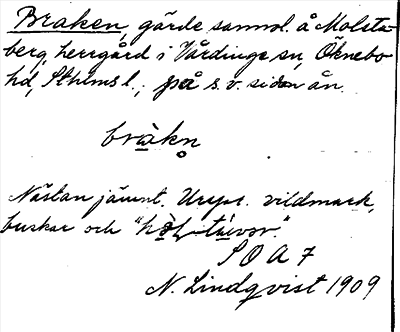 Braken, gärde sannol. å Molsta-
berg, herrgård i Vårdinge sn, Öknebo
hd, Sthlms l., på s.v. sidan ån.
bràkn̥
Nästan jämnt. Urspr. vildmark,
buskar och
SOA 7
N. Lindqvist 1909